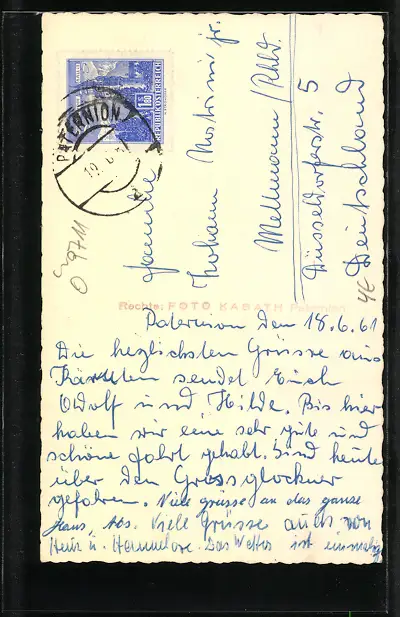 1.80
REPUBLIK ÖSTERREICH
PATERNION
Familie
Johann
jr.
Mettmann / Rhld.
Düsseldorferstr. 5
Deutschland
O 9711
4E
Rechte: FOTO KABATH Paternion
Paternion den 18.6.61
Die herzlichsten Grüsse aus
Kärnten sendet Euch
Adolf und Hilde. Bis hier
haben wir eine sehr gute und
schöne Fahrt gehabt. Sind heute
über den Grossglockner
gefahren. Viele grüsse an das ganze
Haus, Viele Grüsse auch von
Heinz u. Hannelore. Das Wetter ist einmalig